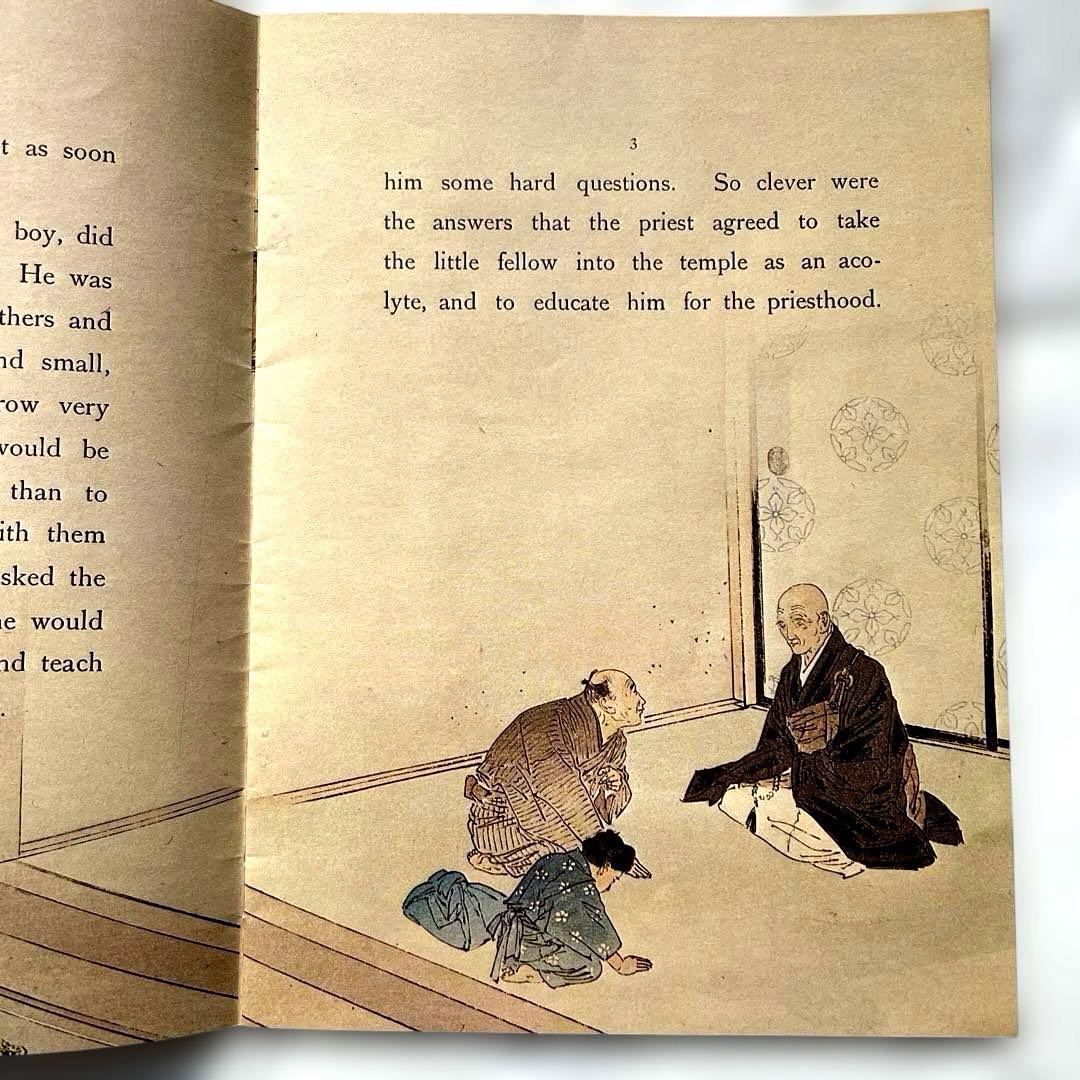 t as soon
boy, did
He was
thers and
nd small,
row very
would be
than to
ith them
sked the
he would
nd teach
3
him some hard questions. So clever were
the answers that the priest agreed to take
the little fellow into the temple as an aco-
lyte, and to educate him for the priesthood.